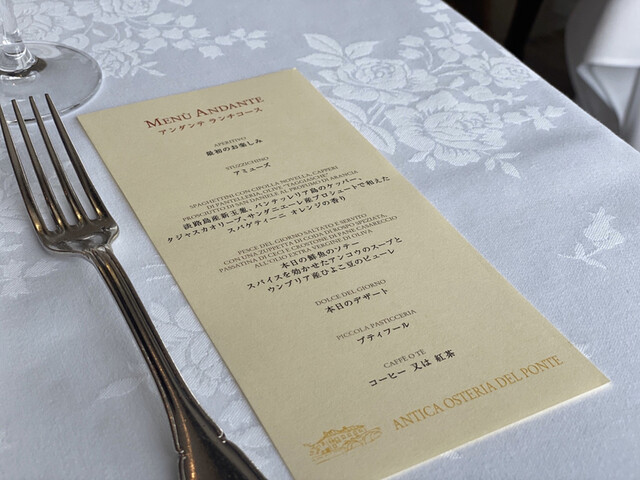 MENU ANDANTE
アンダンテ ランチコース
APERITIVO
最初のお楽しみ
STUZZICHINO
アミューズ
SPAGHETTINI CON CIPOLLA NOVELLA, CAPPERI
DI PANTELLERIA, OLIVE "TAGGIASCHE"
PROSCIUTTO DI SAN DANIELE AL PROFUMO DI ARANCIA
淡路島産新玉葱、パンテッレリア島のケッパー、
タジャスカオリーブ、サンダニエーレ産プロシュートで和えた
スパゲティーニ オレンジの香り
PESCE DEL GIORNO SALTATO E SERVITO
CON UNA ZUPPETTA DI CODA DI ROSPO SPEZIATA,
PASSATINA DI CECI E CROSTONE DI PANE CASARECCIO
ALL'OLIO EXTRAVERGINE DI OLIVA
本日の鮮魚のソテー
スパイスを効かせたアンコウのスープと
ウンブリア産ひよこ豆のピューレ
DOLCE DEL GIORNO
本日のデザート
PICCOLA PASTICCERIA
プティフール
CAFFÈ O TÈ
コーヒー 又は 紅茶
ANTICA OSTERIA DEL PONTE